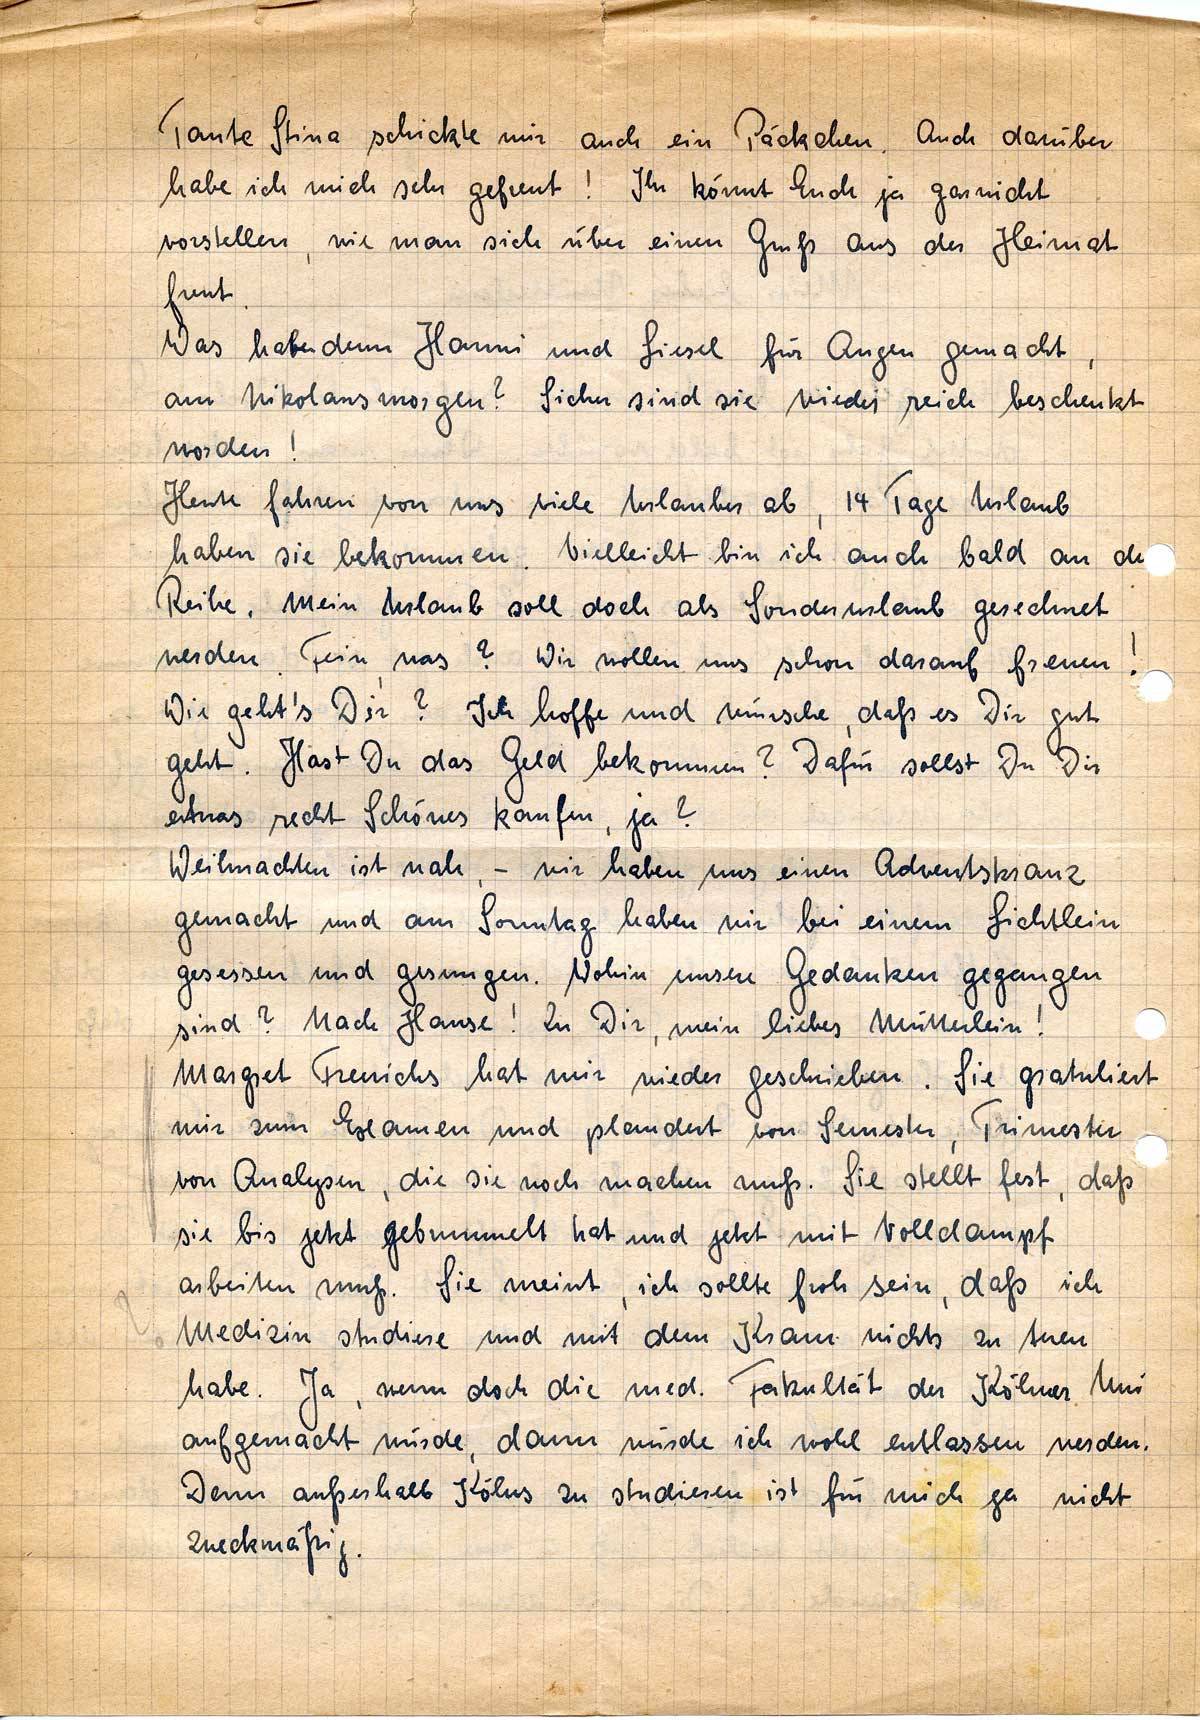 Tante Stina schickte mir auch ein Päckchen. Auch darüber
habe ich mich sehr gefreut! Ihr könnt Euch ja garnicht
vorstellen, wie man sich über einen Gruß aus der Heimat
freut.
Was haben denn Hanni und Liesel für Augen gemacht,
am Nikolausmorgen? Sicher sind sie wieder reich beschenkt
worden!
Heute fahren von uns viele Urlauber ab, 14 Tage Urlaub
haben sie bekommen. Vielleicht bin ich auch bald an de
Reihe. Mein Urlaub soll doch als Sonderurlaub gerechnet
werden. Fein, was? Wir wollen uns schon darauf freuen!
Wie geht's Dir? Ich hoffe und wünsche, daß es Dir gut
geht. Hast Du das Geld bekommen? Dafür sollst Du Dir
etwas recht Schönes kaufen, ja?
Weihnachten ist nah, - wir haben uns einen Adventskranz
gemacht und am Sonntag haben wir bei einem Lichtlein
gesessen und gesungen. Wohin unsere Gedanken gegangen
sind? Nach Hause! Zu Dir, mein liebes Mütterlein!
Margret Frerichs hat mir wieder geschrieben. Sie gratuliert
mir zum Examen und plaudert von Semester, Trimester
von Analysen, die sie noch machen muß. Sie stellt fest, daß
sie bis jetzt gebummelt hat und jetzt mit Volldampf
arbeiten muß. Sie meint, ich sollte froh sein, daß ich
Medizin studiere und mit dem Kram nichts zu tuen
habe. Ja, wenn doch die med. Fakultät der Kölner Uni
aufgemacht würde, dann würde ich wohl entlassen werden.
Denn außerhalb Kölns zu studieren ist für mich ja nicht
zweckmäßig.